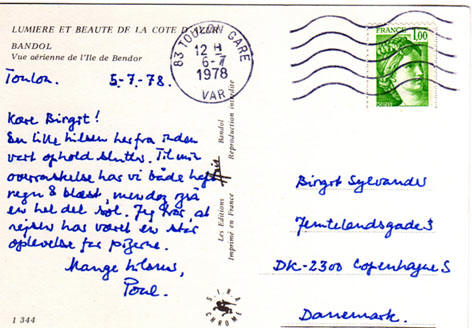 LUMIERE ET BEAUTE DE LA COTE D'AZUR
BANDOL
Vue aérienne de l'Ile de Bendor
83 TOULON GARE
12 H
6-7
1978
VAR
FRANCE
1,00
Toulon. 5-7-78.
Kære Birgit!
En lille hilsen herfra inden
vort ophold sluttes. Til min
overraskelse har vi både haft
regn & blæst, men dog også
en hel del sol. Jeg tror, at
rejsen har været en stor
oplevelse for pigerne.
Mange hilsner,
Poul.
Les Editions Bandol
Imprimé en France Reproduction interdite
Birgit Sylvander
Jemtelandsgade 3
DK-2300 Copenhague S
Danemark.
SIRA
CHROME
1 344